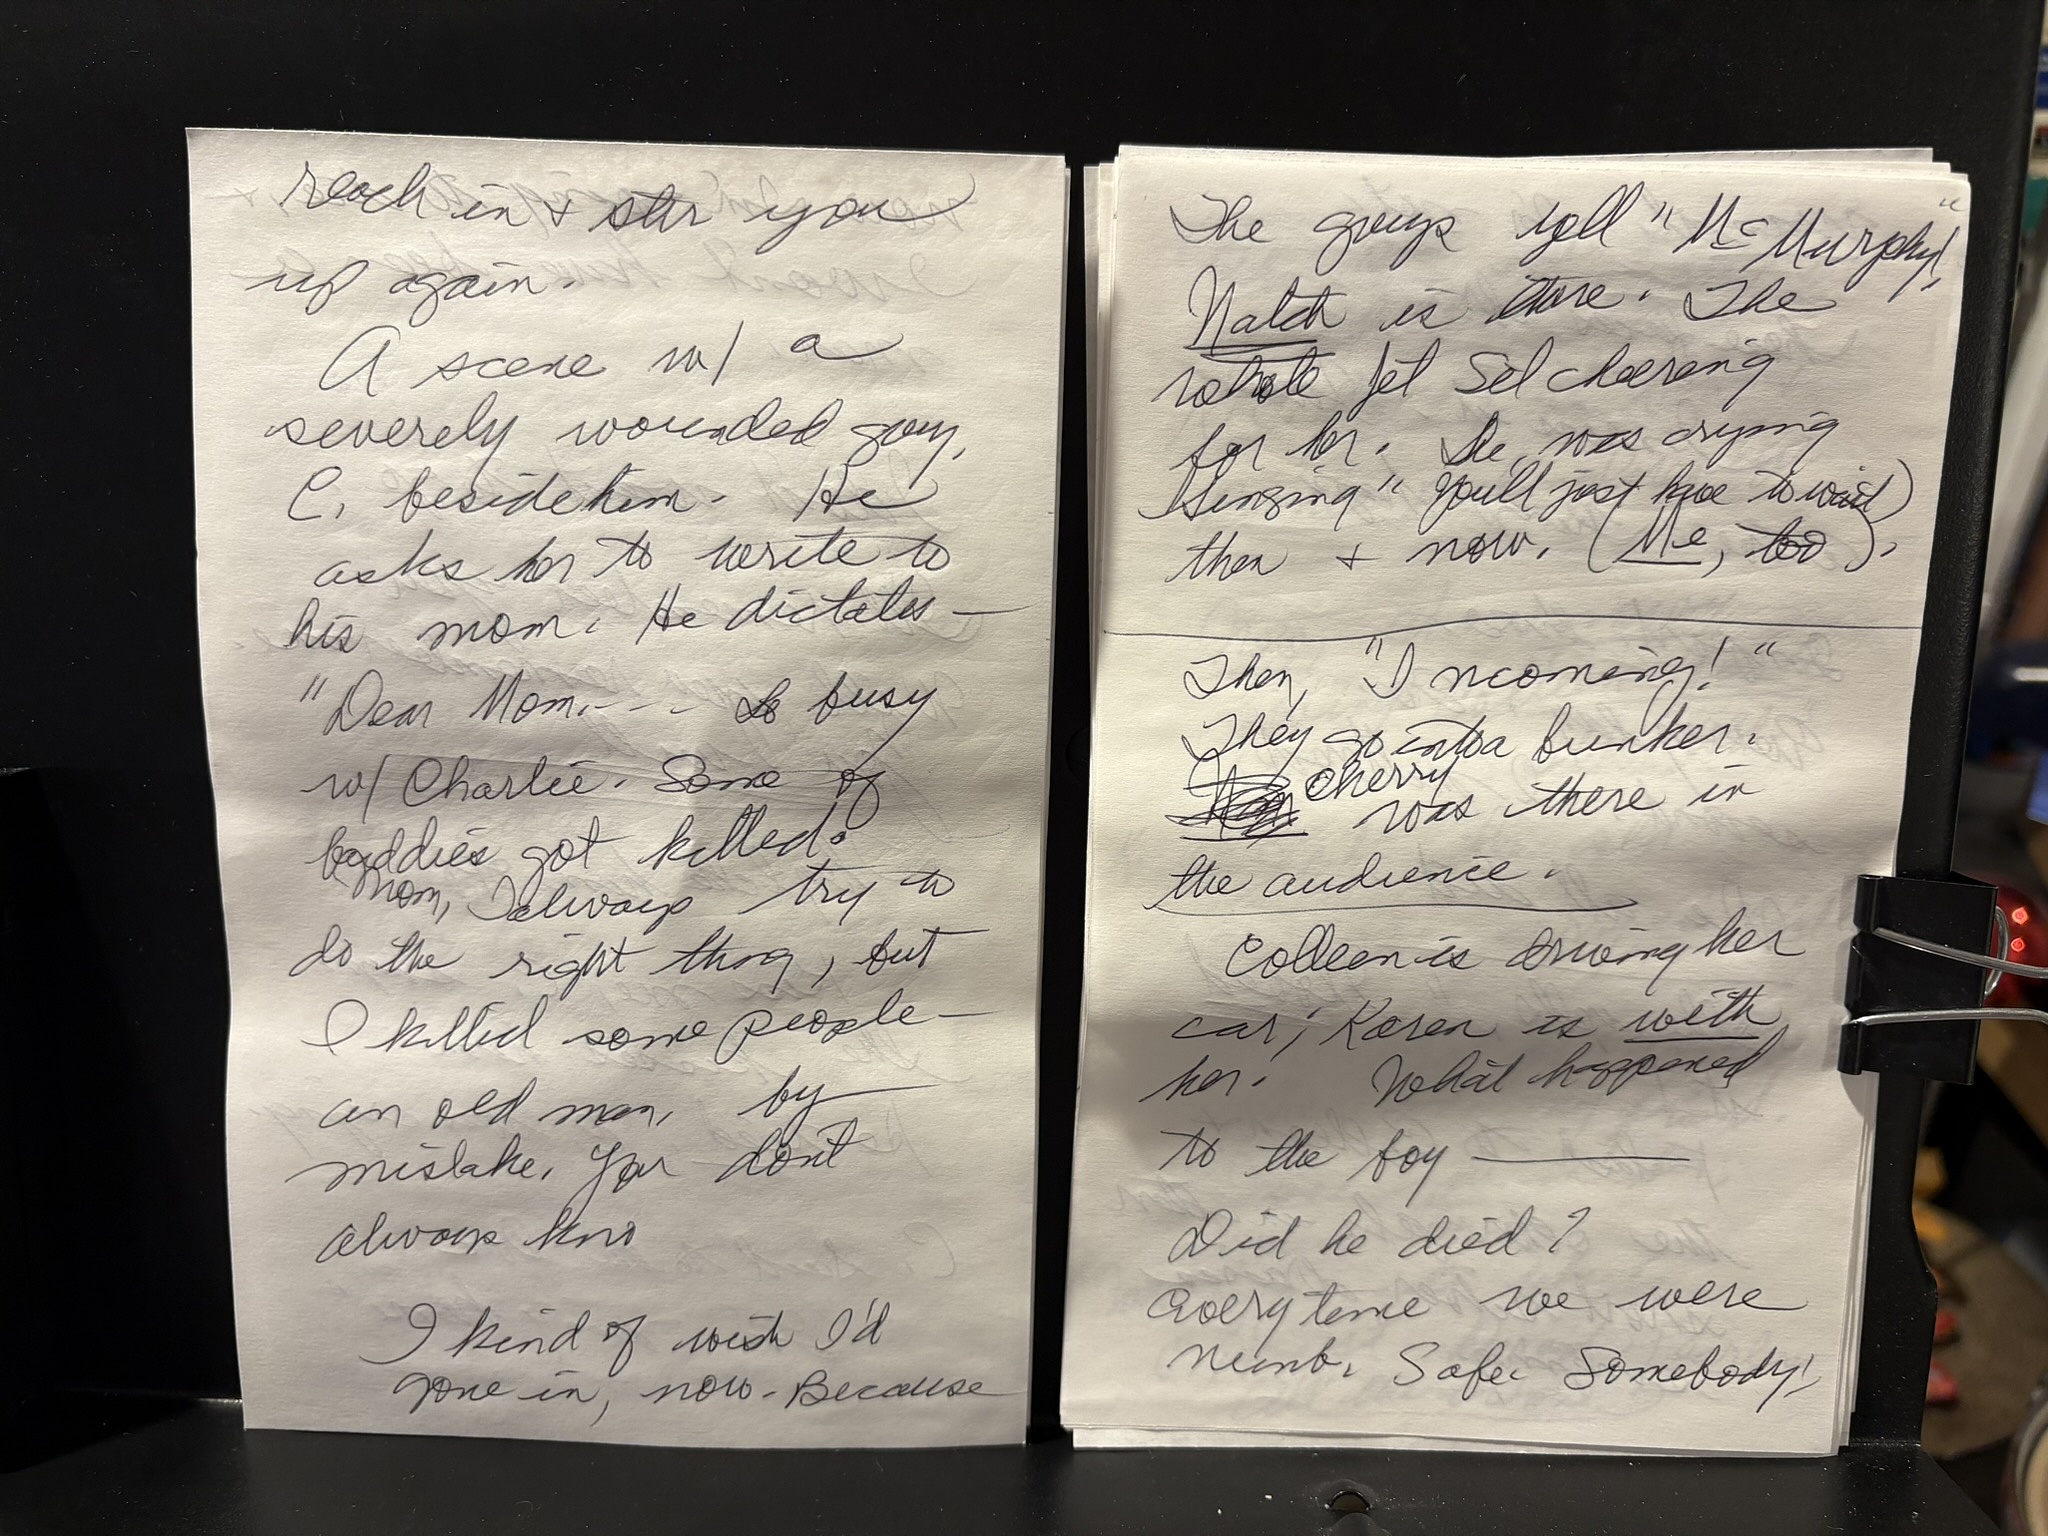 reach in + stir you
up again.
A scene w/ a
severely wounded guy,
C. beside him. He
asks her to write to
his mom. He dictates —
"Dear Mom. - - - So busy
w/ Charlie. Some of
buddies got killed.
Mom, I always try to
do the right thing, but
I killed some people —
an old man, by
mistake. You don't
always kno
I kind of wish I'd
gone in, now. Because
The guys yell "McMurphy!"
Natch is there. The
whole Jet Set cheering
for her. He was crying
Singing "you'll just have to wait)
then + now. (Me, too).
Then, "Incoming!"
They go into a bunker.
Cherry
was there in
the audience.
Colleen is driving her
car; Karen is with
her. What happened
to the boy —
Did he died?
Everytime we were
numb. Safe. Somebody!